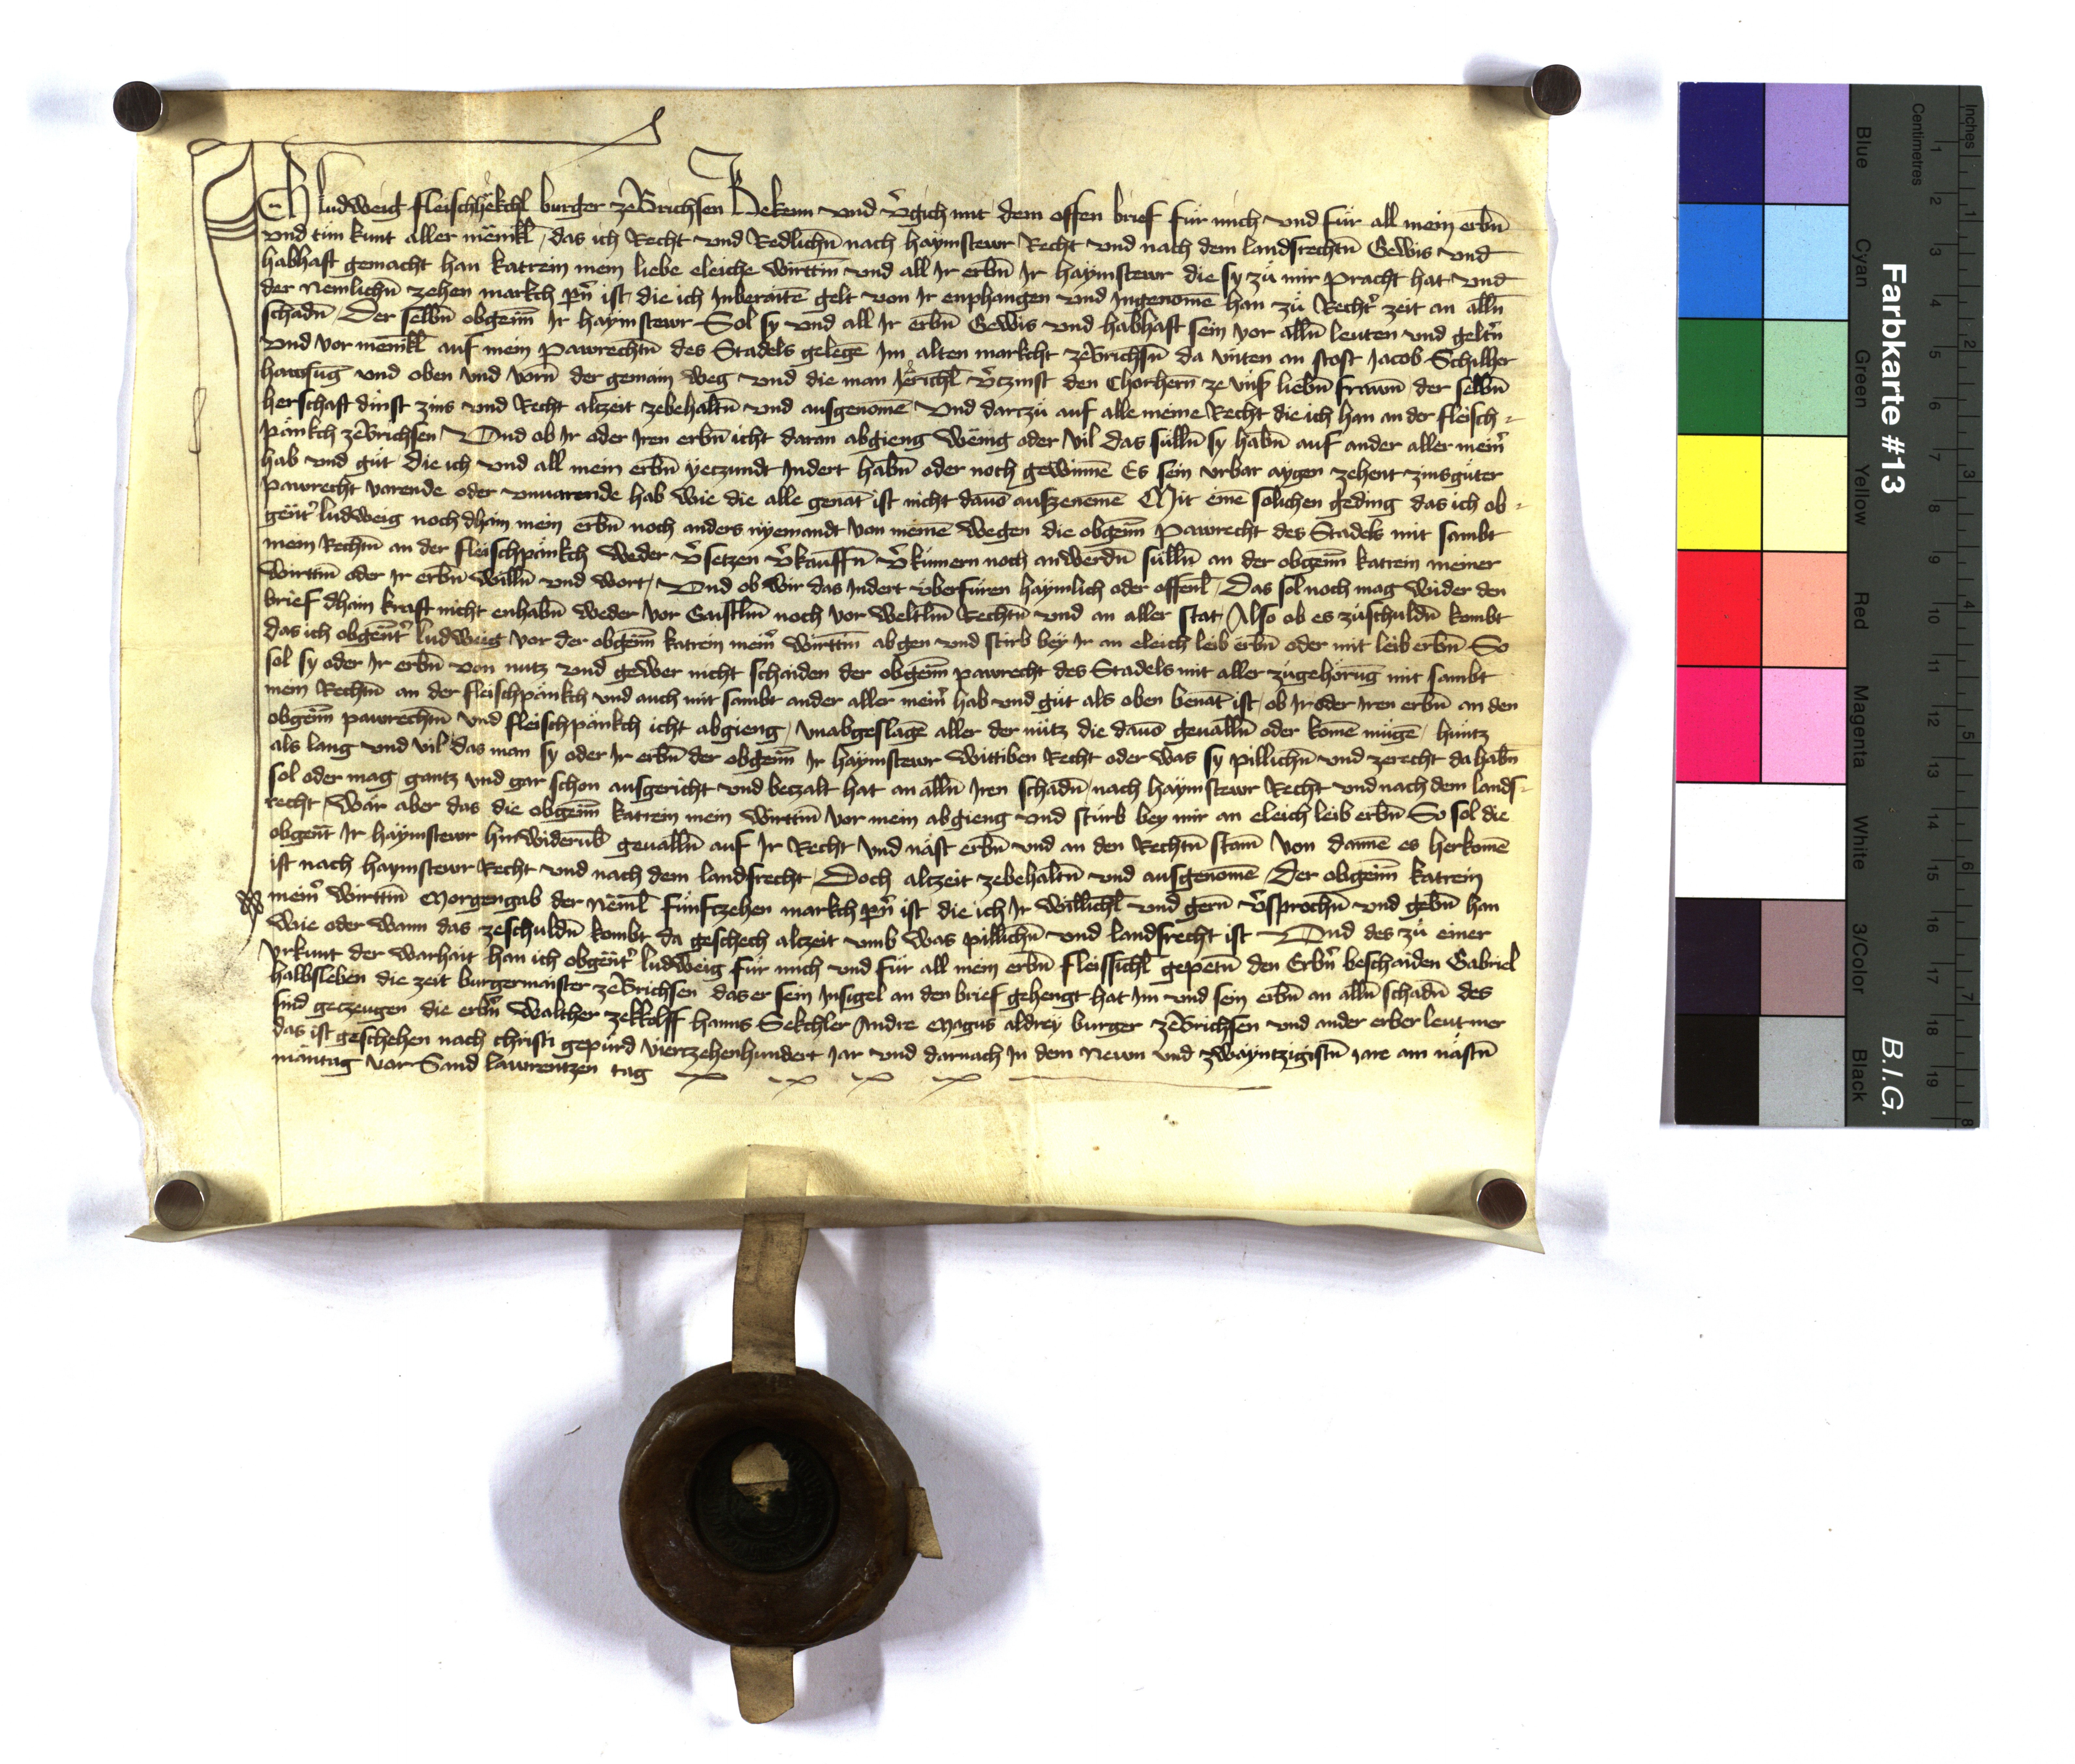 Ich ludweig fleischhekchl burger zeBrichsen Bekenn vnd v̉gich mit dem offen brief für mich vnd für all mein erbn̄
vnd tün kunt aller mēnikl̄, das ich Recht vnd Redlichn̄ nach haymstewr Recht vnd nach dem landsrechtn̄ Gewis vnd
habhaft gemacht han katrein mein liebe eleiche wirttin̄ vnd all Ir erbn̄ Ir haymstewr die sy zü mir pracht hat vnd
der Nemlichn̄ zehen markch pn̄ ist, die ich Inberaitē gelt von Ir enphangen vnd Ingenomē han zü Recht̉ zeit an alln̄
schadn̄, Der selbn̄ obgen̄n Ir haymstewr Sol sy vnd all Ir erbn̄ Gewis vnd habhaft sein vor alln̄ leuten vnd geltn̉
vnd vor menikl̄ auf mein pawrechtn̄ des Stadels gelegē Im alten markcht zeBrichsn̄ da vnten an stost Jacob Schilher
hawsūg vnd oben vnd vorn̄ der gemain weg vnd die man Jērichl̄ v̉tzinst den Chorhern̄ ze vns̉ liebn̄ frawn̄ der selbn̄
herschaft dinst zins vnd Recht altzeit zebehaltn̄ vnd ausgenomē Vnd dartzü auf alle meine Recht die ich han an der fleisch-
pänkch zeBrichsen, Vnd ob Ir oder Iren erbn̄ icht daran abgieng wēnig oder vil das sülln̄ sy habn̄ auf ander aller mein̉
hab vnd güt die ich vnd all mein erbn̄ yetzundt Indert habn̄ oder noch gewinnē Es sein vrbar aygen zehent zinsgüter
pawrecht varende oder vnuarende hab wie die alle genāt ist nicht dauō auszenemē Mit eine solichen geding das ich ob-
gēnt̉ ludweig noch dhain mein erbn̄ noch anders nyemandt von meinē wegen die obgen̄n pawrecht des Stadels mit sambt
mein Rechtn̄ an der fleischpänkch weder v̉setzen v̉kauffn̄ v̉kümern noch anwerdn̄ sülln̄ an der obgen̄n katrein meiner
wirttin̄ oder Ir erbn̄ willn̄ vnd wort, Vnd ob wir das Indert überfüren haymlich oder offenl̄, Das sol noch mag wider den
brief dhain kraft nicht enhabn̄ weder vor Gaistln̄ noch vor weltln̄ Rechtn̄ vnd an aller stat, Also ob es züschuldn̄ kombt
das ich obgēnt̉ ludweig vor der obgen̄n katrein mein̉ wirttin̄ abgen vnd stirb bey Ir an eleich leib erbn̄ oder mit leib erbn̄ So
sol sy oder Ir erbn̄ von nutz vnd gewer nicht schaiden der obgen̄n pawrecht des Stadels mit aller zügehörūg mit sambt
mein Rechtn̄ an der fleischpänkch vnd auch mit sambt ander aller mein̉ hab vnd güt als oben benāt ist, ob Ir oder Iren erbn̄ an den
obgen̄n pawrechtn̄ vnd fleischpänkch icht abgieng, vnabgeslagē aller der nütz die dauō geualln̄ oder komē mügē, hüntz
als lang vnd vil das man sy oder Ir erbn̄ der obgen̄n Ir haymstewr wittiben Recht oder was sy pillichn̄ vnd zerecht da habn̄
sol oder mag, gantz vnd gar schon ausgericht vnd betzalt hat an alln̄ Iren schadn̄, nach haymstewr Recht vnd nach dem lands-
recht, Wär aber das die obgen̄n katrein mein wirttin̄ vor mein abgieng vnd stürb bey mir an eleich leib erbn̄ So sol die
obgēnt Ir haymstewr hinwiderūb geualln̄ auf Ir Recht vnd näst erbn̄ vnd an den Rechtn̄ stam̄ von dannē es herkomē
ist nach haymstewr Recht vnd nach dem landsrecht, Doch altzeit zebehaltn̄ vnd ausgenomē Der obgen̄n katrein
mein̉ wirttin̄ Morgengab der Nēml̄ fünftzehen markch pn̄ ist die ich Ir willichl̄ vnd gern̄ v̉sprochn̄ vnd gebn̄ han
wie oder wann das zeschuldn̄ kombt da geschech altzeit vmb was pillichn̄ vnd landsrecht ist Vnd des zü einer
vrkunt der warhait han ich obgēnt̉ ludweig für mich vnd für all mein erbn̄ fleissichl̄ gepetn̄ den Erbn̉ beschaiden Gabriel
halbsleben die zeit burgermaister zeBrichsen das er sein Insigel an den brief gehengt hat Im vnd sein erbn̄ an alln̄ schadn̄ des
sind getzeugen die erbn̉ Walther zekkolff hanns Sekchler Andre Magus aldrey burger zeBrichsen vnd ander erber leut mer
das ist geschehen nach christi gepurd viertzehenhundert Jar vnd darnach In dem Newn vnd zwayntzigistn̄ Jare am nästn̄
mäntag vor Sand lawrentzen tag
Farbkarte #13
B.I.G.
Blue
Cyan
Green
Yellow
Red
Magenta
White
3/Color
Black
Centimetres
Inches
1 2 3 4 5 6 7 8 9 10 11 12 13 14 15 16 17 18 19
1 2 3 4 5 6 7 8